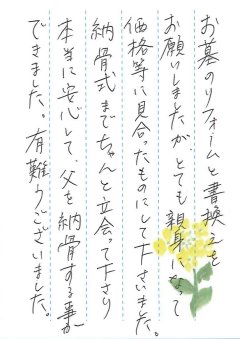 お墓のリフォームと書換えを
お願いしましたが、とても親身になって
価格等に見合ったものにして下さいました。
納骨式までちゃんと立会って下さり
本当に安心して、父を納骨する事が
できました。有難うございました。